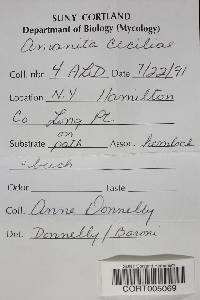 SUNY CORTLAND
Department of Biology (Mycology)
Amanita Ceciliae
Coll. nbr 4 ALD Date 7/22/91
Location N.Y Hamilton
Co Ling Pt.
on
Substrate path Assoc. hemlock
+ beech
Odor Taste
Coll. Anne Donnelly
Det. Donnelly / Baroni
SUNY Cortland Herbarium
CORT005069